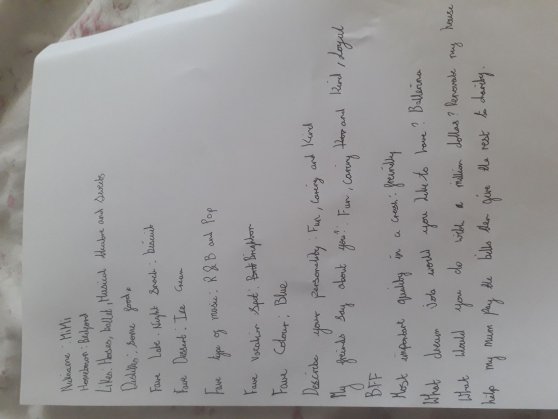 Nickname: MiMi
Hometown: Bedford
Likes: Horses, ballet, Musical theatre and Sweets
Dislikes: Some foods
Fave Late Night Snack: biscuit
Fave Dessert: Ice Cream
Fave type of music: R&B and Pop
Fave Vacation Spot: Brighton
Fave Colour: Blue
Describe your personality: Fun, Caring and Kind
My friends say about you: Fun, Caring and Kind, Loyal
BFF
Most important quality in a crush: friendly
What dream Job would you like to have? Ballerina
What Would you do with a million dollars? Renovate my house
help my mum pay the bills then give the rest to charity.